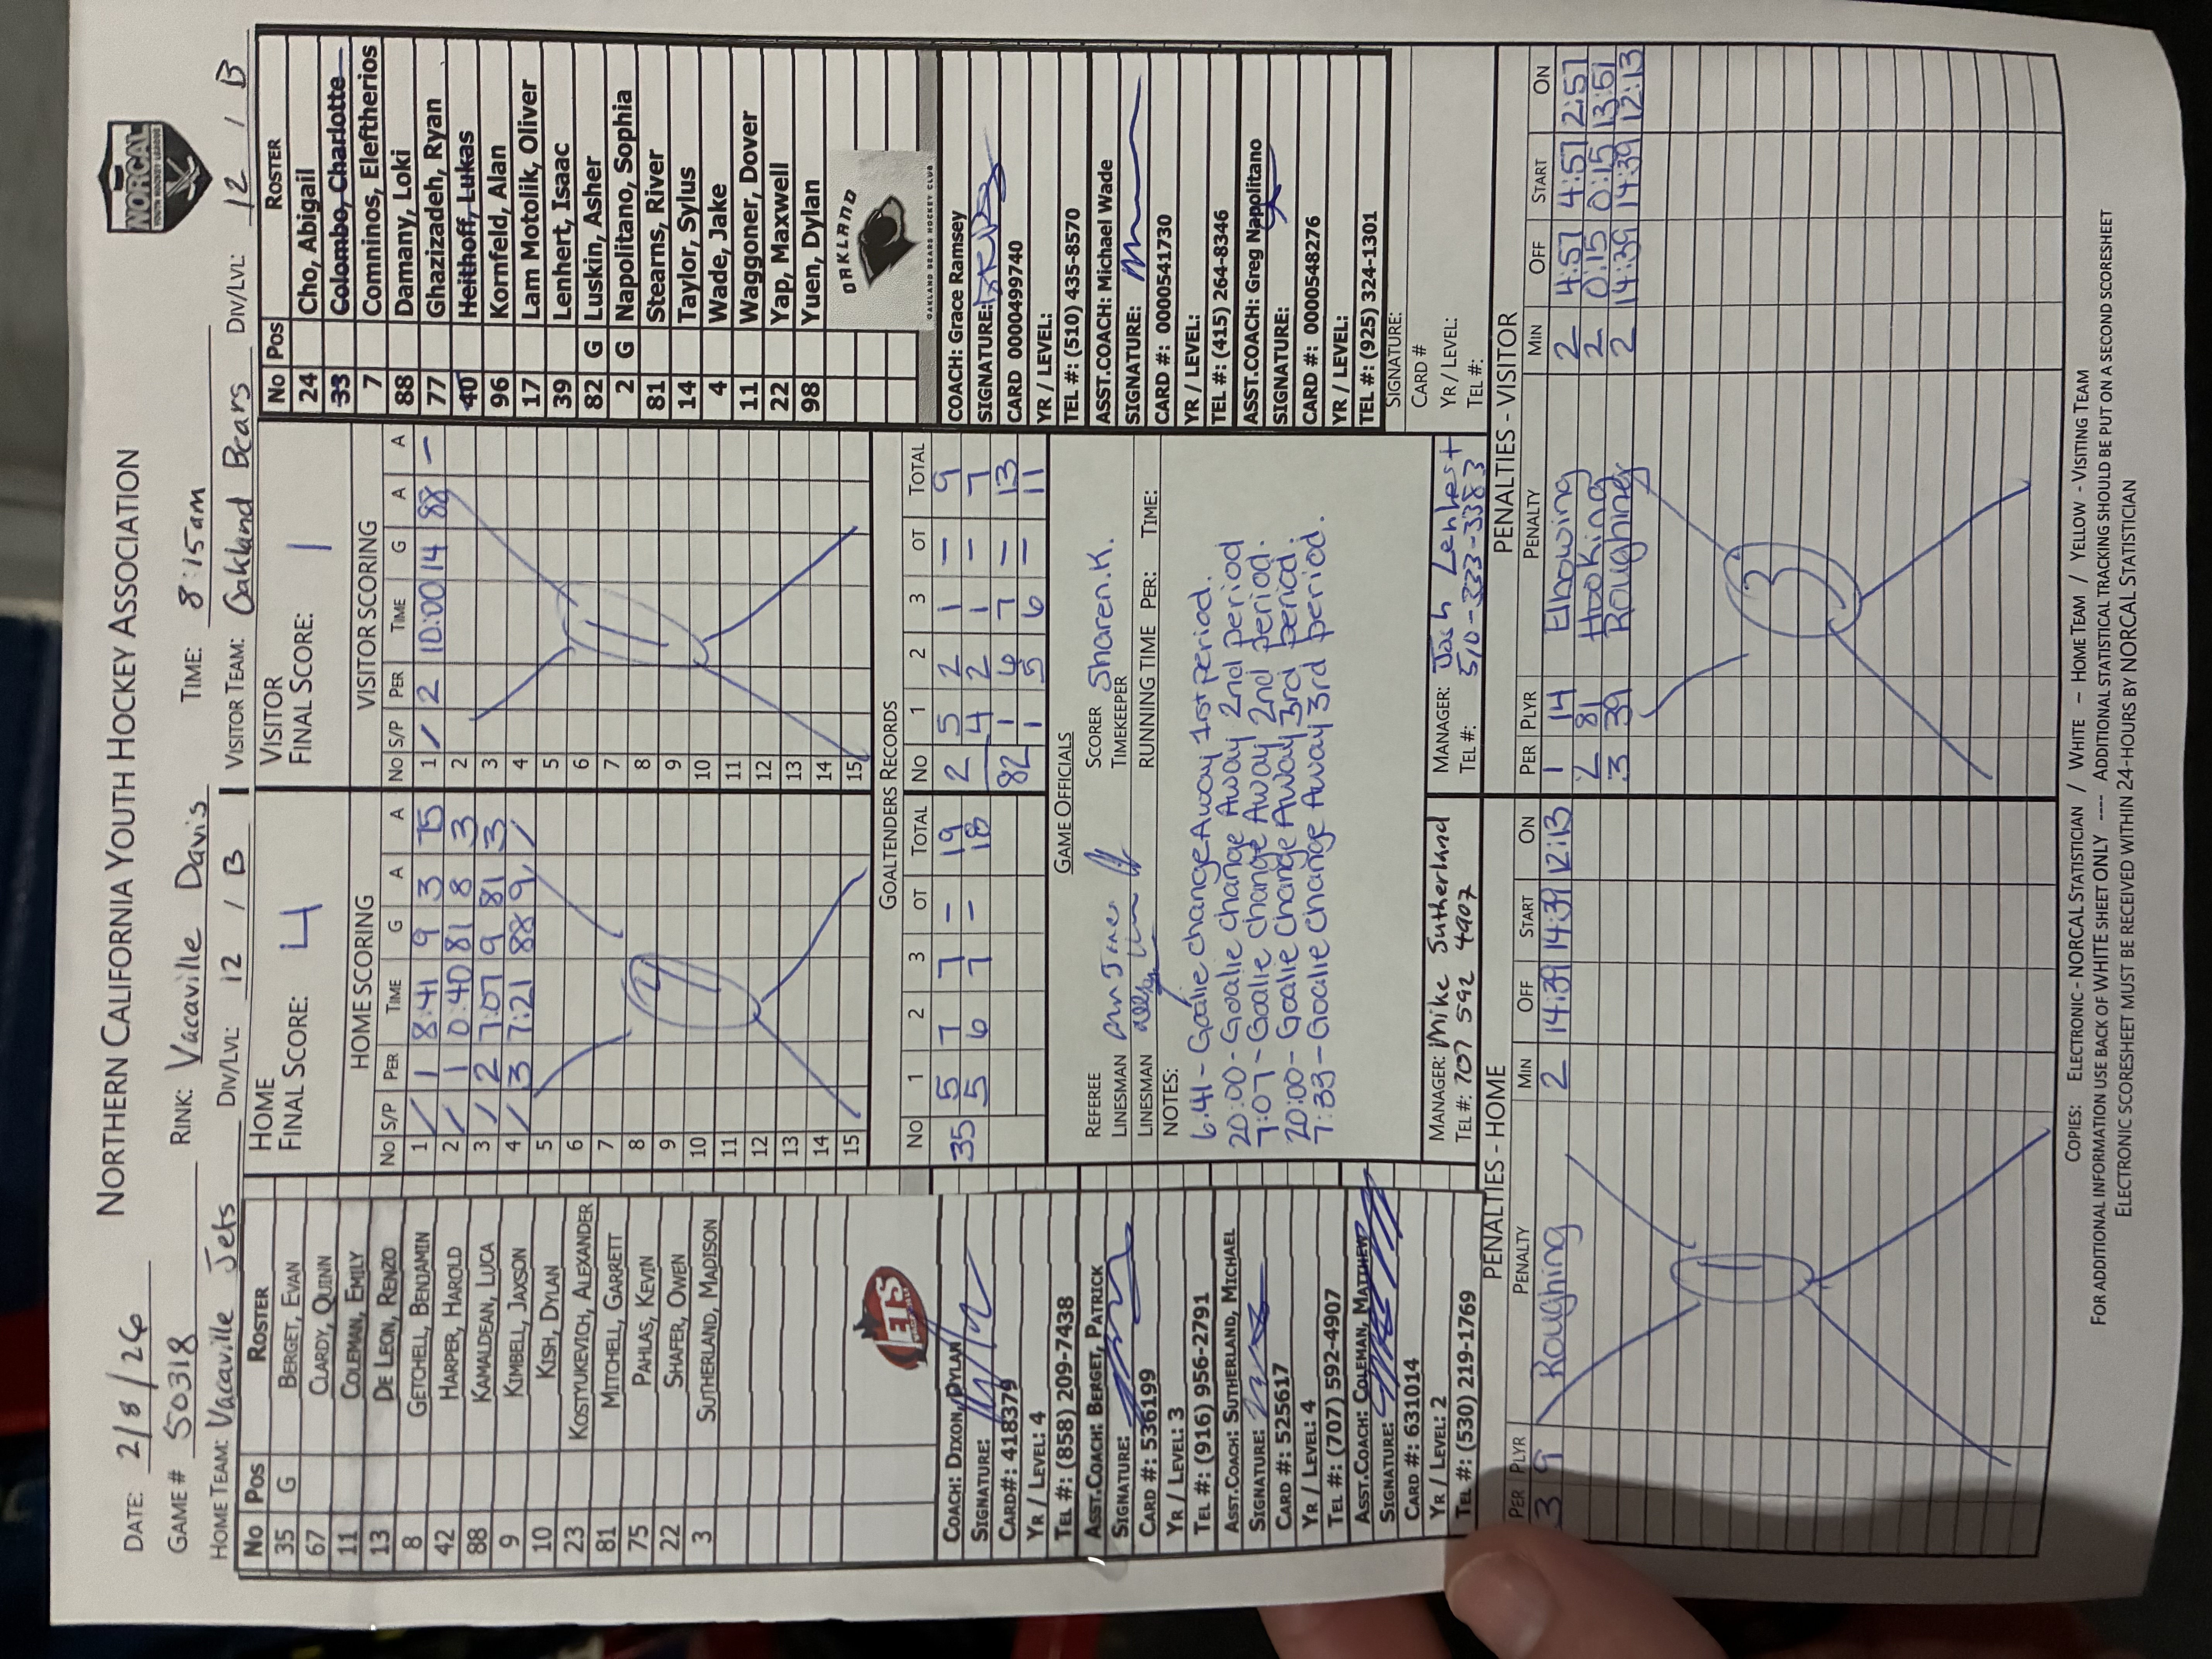 NORTHERN CALIFORNIA YOUTH HOCKEY ASSOCIATION
NORCAL
YOUTH HOCKEY LEAGUE
DATE: 2/8/26
GAME # 50318 RINK: Vacaville Davis TIME: 8:15am
HOME TEAM: Vacaville Jets DIV/LVL: 12 / B VISITOR TEAM: Oakland Bears DIV/LVL: 12 / B
No Pos ROSTER
35 G BERGET, EVAN
67 CLARDY, QUINN
11 COLEMAN, EMILY
13 DE LEON, RENZO
8 GETCHELL, BENJAMIN
42 HARPER, HAROLD
88 KAMALDEAN, LUCA
9 KIMBELL, JAXSON
10 KISH, DYLAN
23 KOSTYUKEVICH, ALEXANDER
81 MITCHELL, GARRETT
75 PAHLAS, KEVIN
22 SHAFER, OWEN
3 SUTHERLAND, MADISON
JETS
COACH: DIXON, DYLAN
SIGNATURE:
CARD#: 418379
YR / LEVEL: 4
TEL #: (858) 209-7438
ASST.COACH: BERGET, PATRICK
SIGNATURE:
CARD #: 536199
YR / LEVEL: 3
TEL #: (916) 956-2791
ASST.COACH: SUTHERLAND, MICHAEL
SIGNATURE:
CARD #: 525617
YR / LEVEL: 4
TEL #: (707) 592-4907
ASST.COACH: COLEMAN, MATTHEW
SIGNATURE:
CARD #: 631014
YR / LEVEL: 2
TEL #: (530) 219-1769
HOME
FINAL SCORE: 4
HOME SCORING
No S/P PER TIME G A A
1 / 1 8:41 9 3 75
2 / 1 0:40 81 8 3
3 / 2 7:07 9 81 3
4 / 3 7:21 88 9 /
5
6
7
8
9
10
11
12
13
14
15
VISITOR
FINAL SCORE: 1
VISITOR SCORING
No S/P PER TIME G A A
1 / 2 10:00 14 88 —
2
3
4
5
6
7
8
9
10
11
12
13
14
15
GOALTENDERS RECORDS
No 1 2 3 OT TOTAL No 1 2 3 OT TOTAL
35 5 7 7 — 19 2 5 2 1 — 9
5 6 7 — 18 4 2 1 — 7
82 1 6 7 — 13
1 5 6 — 11
GAME OFFICIALS
REFEREE SCORER Sharen.K.
LINESMAN TIMEKEEPER
LINESMAN RUNNING TIME PER: TIME:
NOTES:
6:41 - Goalie change Away 1rst period.
20:00 - Goalie change Away 2nd period
7:07 - Goalie change Away 2nd period.
20:00 - Goalie change Away 3rd period.
7:33 - Goalie change Away 3rd period.
MANAGER: Mike Sutherland
TEL #: 707 592 4907
MANAGER: Josh Lenhert
TEL #: 510-333-3383
No Pos ROSTER
24 Cho, Abigail
33 Colombo, Charlotte
7 Comninos, Eleftherios
88 Damany, Loki
77 Ghazizadeh, Ryan
40 Heithoff, Lukas
96 Kornfeld, Alan
17 Lam Motolik, Oliver
39 Lenhert, Isaac
82 G Luskin, Asher
2 G Napolitano, Sophia
81 Stearns, River
14 Taylor, Sylus
4 Wade, Jake
11 Waggoner, Dover
22 Yap, Maxwell
98 Yuen, Dylan
OAKLAND
OAKLAND BEARS HOCKEY CLUB
COACH: Grace Ramsey
SIGNATURE:
CARD 0000499740
YR / LEVEL:
TEL #: (510) 435-8570
ASST.COACH: Michael Wade
SIGNATURE:
CARD #: 0000541730
YR / LEVEL:
TEL #: (415) 264-8346
ASST.COACH: Greg Napolitano
SIGNATURE:
CARD #: 0000548276
YR / LEVEL:
TEL #: (925) 324-1301
SIGNATURE:
CARD #
YR / LEVEL:
TEL #:
PENALTIES - HOME
PER PLYR PENALTY MIN OFF START ON
3 9 Roughing 2 14:39 14:39 12:13
1
PENALTIES - VISITOR
PER PLYR PENALTY MIN OFF START ON
1 14 Elbowing 2 4:57 4:57 2:57
2 81 Hooking 2 0:15 0:15 13:51
3 39 Roughing 2 14:39 14:39 12:13
3
COPIES: ELECTRONIC - NORCAL STATISTICIAN / WHITE – HOME TEAM / YELLOW - VISITING TEAM
FOR ADDITIONAL INFORMATION USE BACK OF WHITE SHEET ONLY ---- ADDITIONAL STATISTICAL TRACKING SHOULD BE PUT ON A SECOND SCORESHEET
ELECTRONIC SCORESHEET MUST BE RECEIVED WITHIN 24-HOURS BY NORCAL STATISTICIAN